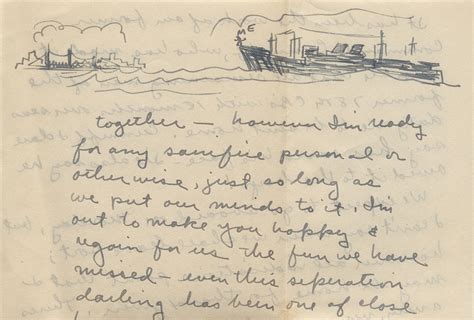 ME
together — however I'm ready
for any sacrifice personal or
otherwise, just so long as
we put our minds to it, I'm
out to make you happy &
again for us the fun we have
missed — even this seperation
darling has been one of close